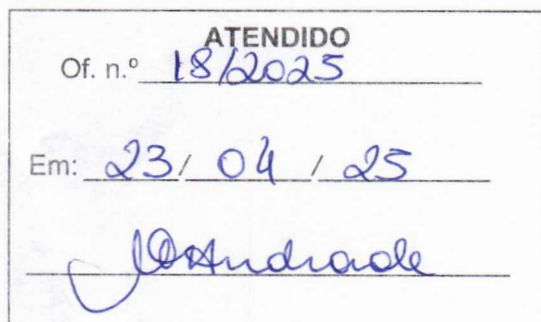 ATENDIDO
Of. n.º 18/2025
Em: 23/ 04 / 25
Andrade